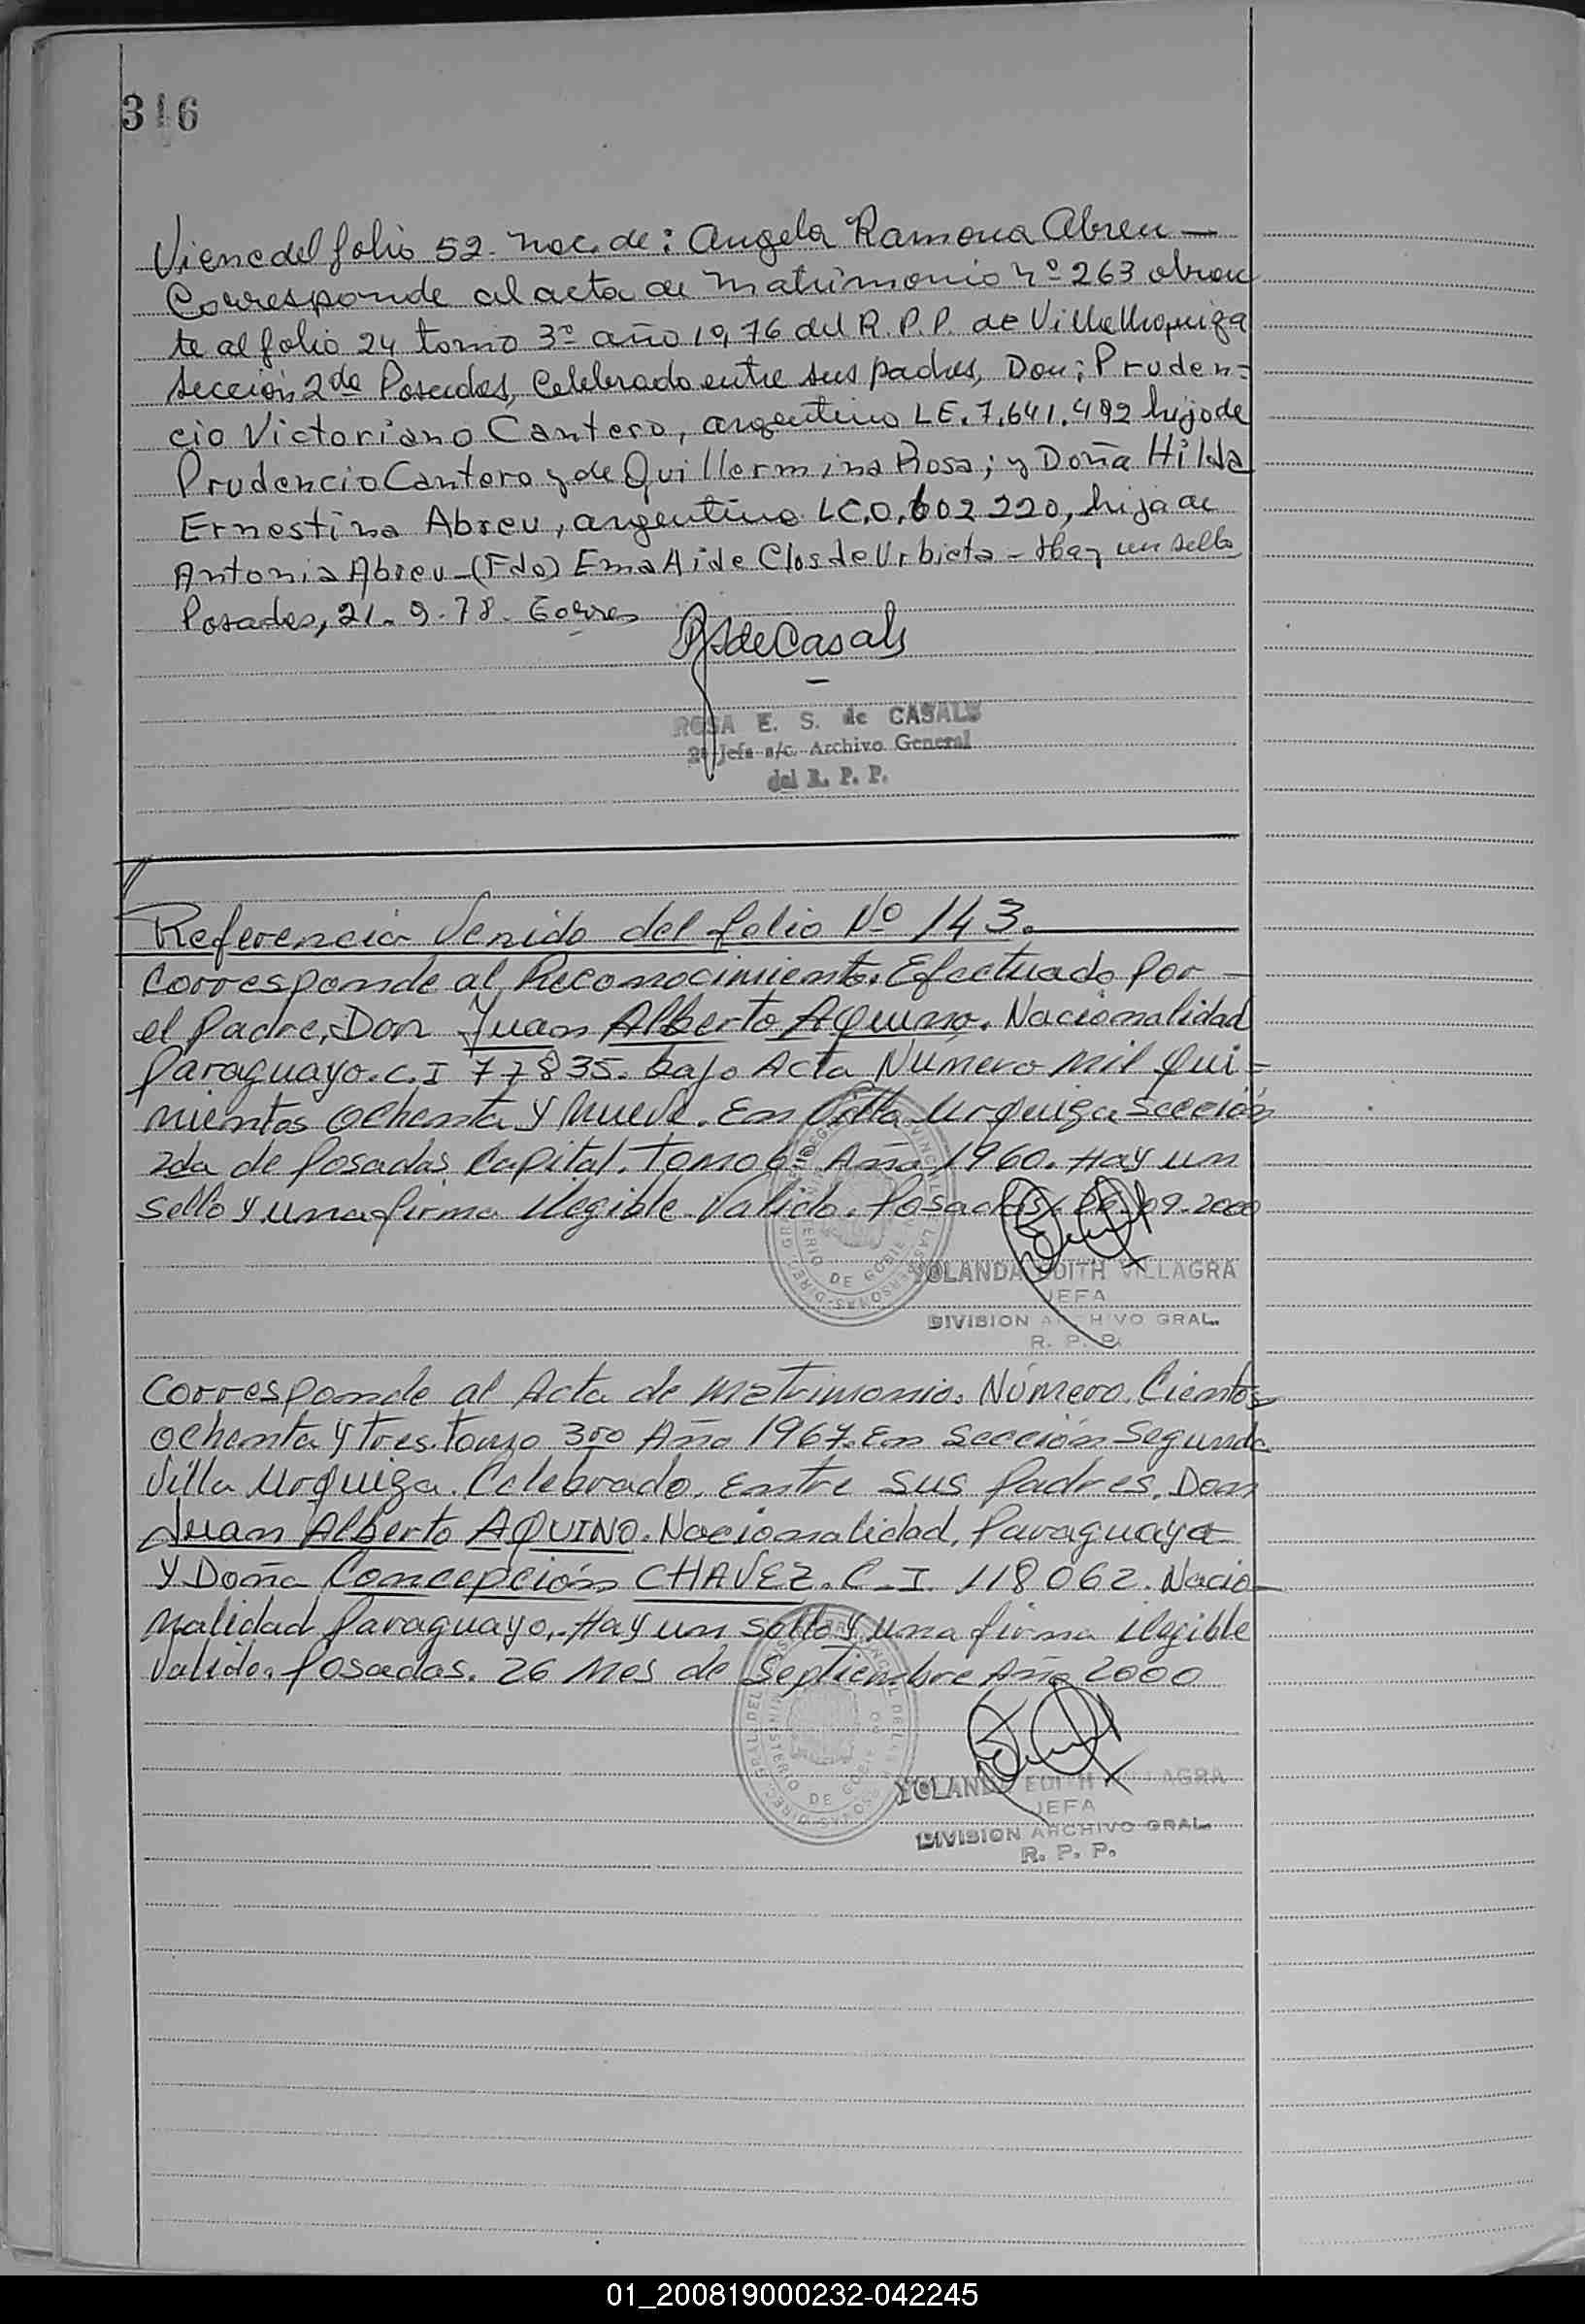 316
Viene del folio 52. Nac. de: Angela Ramona Abreu —
Corresponde al acta de Matrimonio nº 263 obran
te al folio 24 tomo 3º año 1976 del R. P. P. de Villa Urquiza
sección 2da Posadas, Celebrado entre sus padres, Don: Pruden=
cio Victoriano Cantero, argentino LE. 7.641.492 hijo de
Prudencio Cantero y de Guillermina Rosa; y Doña Hilda
Ernestina Abreu, argentina LC. 0.602220, hija de
Antonia Abreu - (Fdo) Ema Aide Clos de Urbieta - Hay un sello
Posadas, 21. 9. 78. Torres
RSdeCasals
ROSA E. S. de CASALS
2ª Jefa a/c. Archivo General
del R. P. P.
Referencia Venido del folio Nº 143.
Corresponde al Reconocimiento. Efectuado Por
el Padre, Don Juan Alberto Aquino. Nacionalidad
Paraguayo. C.I 77835. bajo Acta Número Mil Qui=
nientos Ochenta y Nueve. En Villa Urquiza Sección
2da de Posadas Capital. Tomo 6º Año 1960. Hay un
sello y una firma ilegible. Valido. Posadas. 26.09.2000
YOLANDA EDITH VILLAGRA
JEFA
DIVISION ARCHIVO GRAL.
R. P. P.
Corresponde al Acta de Matrimonio. Número. Cientos
Ochenta y tres. tomo 3ro Año 1967. En Sección Segunda
Villa Urquiza. Celebrado. Entre sus Padres. Don
Juan Alberto AQUINO. Nacionalidad. Paraguaya
y Doña Concepción CHAVEZ. C.I. 118062. Nacio-
nalidad Paraguayo. Hay un sello y una firma ilegible
Valido. Posadas. 26 Mes de Septiembre Año 2000
YOLANDA EDITH VILLAGRA
JEFA
DIVISION ARCHIVO GRAL.
R. P. P.
01_200819000232-042245